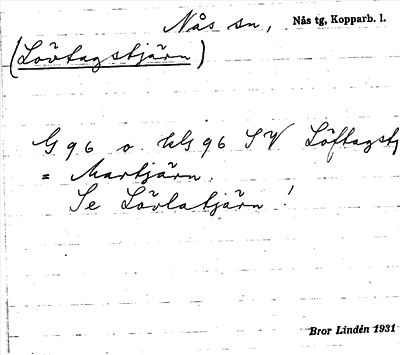 Nås sn, Nås tg, Kopparb. l.
(Lövtagstjärn)
G 96 o. KG 96 SV Löftagstj
= Martjärn.
Se Lövlatjärn!
Bror Lindén 1931